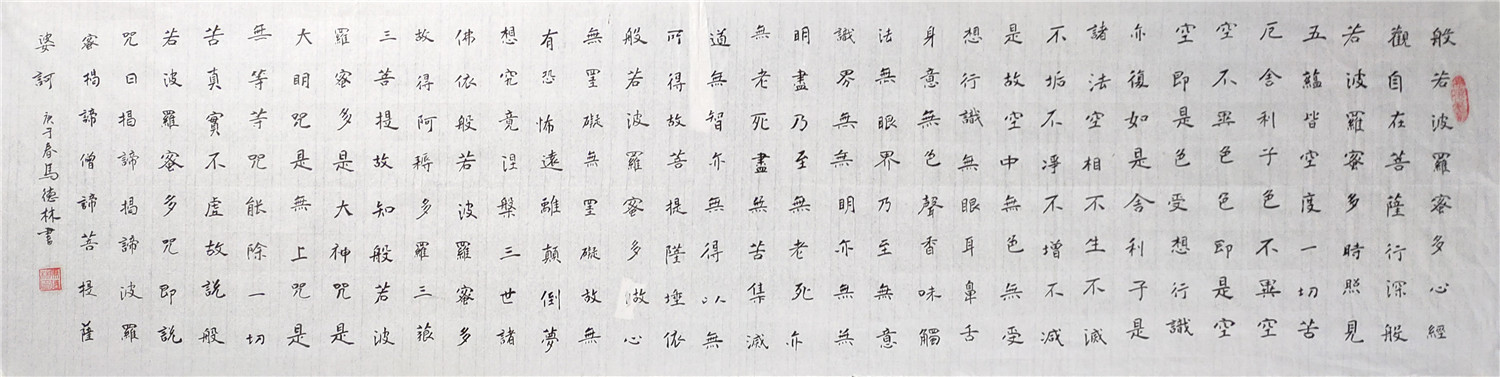 般若波羅蜜多心經
觀自在菩薩行深般
若波羅蜜多時照見
五蘊皆空度一切苦
厄舍利子色不異空
空不異色色即是空
空即是色受想行識
亦復如是舍利子是
諸法空相不生不滅
不垢不淨不增不減
是故空中無色無受
想行識無眼耳鼻舌
身意無色聲香味觸
法無眼界乃至無意
識界無無明亦無無
明盡乃至無老死亦
無老死盡無苦集滅
道無智亦無得以無
所得故菩提薩埵依
般若波羅蜜多做心
無罣礙無罣礙故無
有恐怖遠離顛倒夢
想究竟涅槃三世諸
佛依般若波羅蜜多
故得阿耨多羅三藐
三菩提故知般若波
羅蜜多是大神咒是
大明咒是無上咒是
無等等咒能除一切
苦真實不虛故說般
若波羅蜜多咒即說
咒曰揭諦揭諦波羅
蜜揭諦僧諦菩提薩
婆訶
庚子春馬德林書